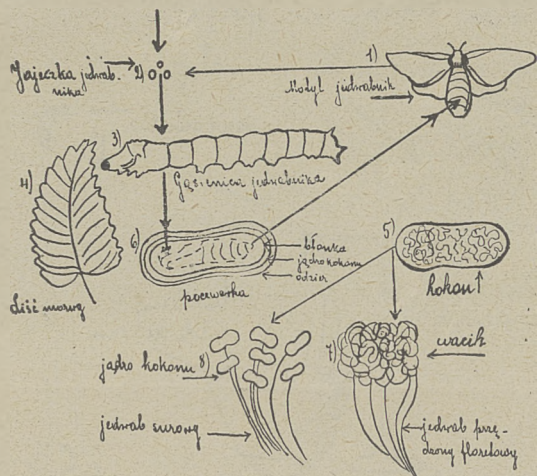 1)
Jajeczka jedwab-
nika
2)
Motyl jedwabnik
3)
4)
Gąsienica jedwabnika
5)
6)
błonka
jądro kokonu
odzież
kokon
poczwarka
Liść morwy
7)
wacik
jądro kokonu 8)
jedwab surowy
jedwab przę-
dzony floretowy